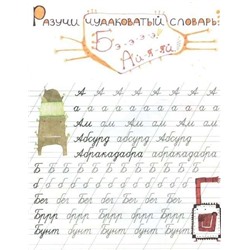 Разучи чудаковатый словарь:
Б-э-э-э-э!
Ай-я-яй
А А А А А А
а а а а а а а
Ам ам Ам ам Ам
Абсурд абсурд Абсурд
Абракадабра абракадабра
Б Б Б Б Б Б Б Б Б Б Б
б б б б б б б б б б
Бег бег Бег бег Бег бег
Бррр бррр Бррр бррр
Бунт бунт Бунт бунт